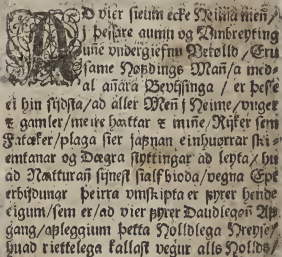 AD vier sieum ecke Heima men/
i þessare aumu og Umbreyting
une undergiefnu Verølld/ Eru
same Nøgdings Man/ a med-
al añara Bevijsinga/ er þesse
ei hin sijdsta/ ad aller Men i Heime/ unger
& gamler/ meire hattar & miñe/ Rijker sem
Fatæker/ plaga sier jafnan einhuørrar ski-
emtanar og Dægra styttingar ad leyta/ hu
ad Natturan sijnest sialf bioda/ vegna
erbijdunar þeirra umskipta er fyrer hende
eigum/ sem er/ ad vier fyrer Daudlegan Af-
gang/ afleggium þetta Holldlega Hreyse/
huad riettelega kallast vegur alls Hollds/